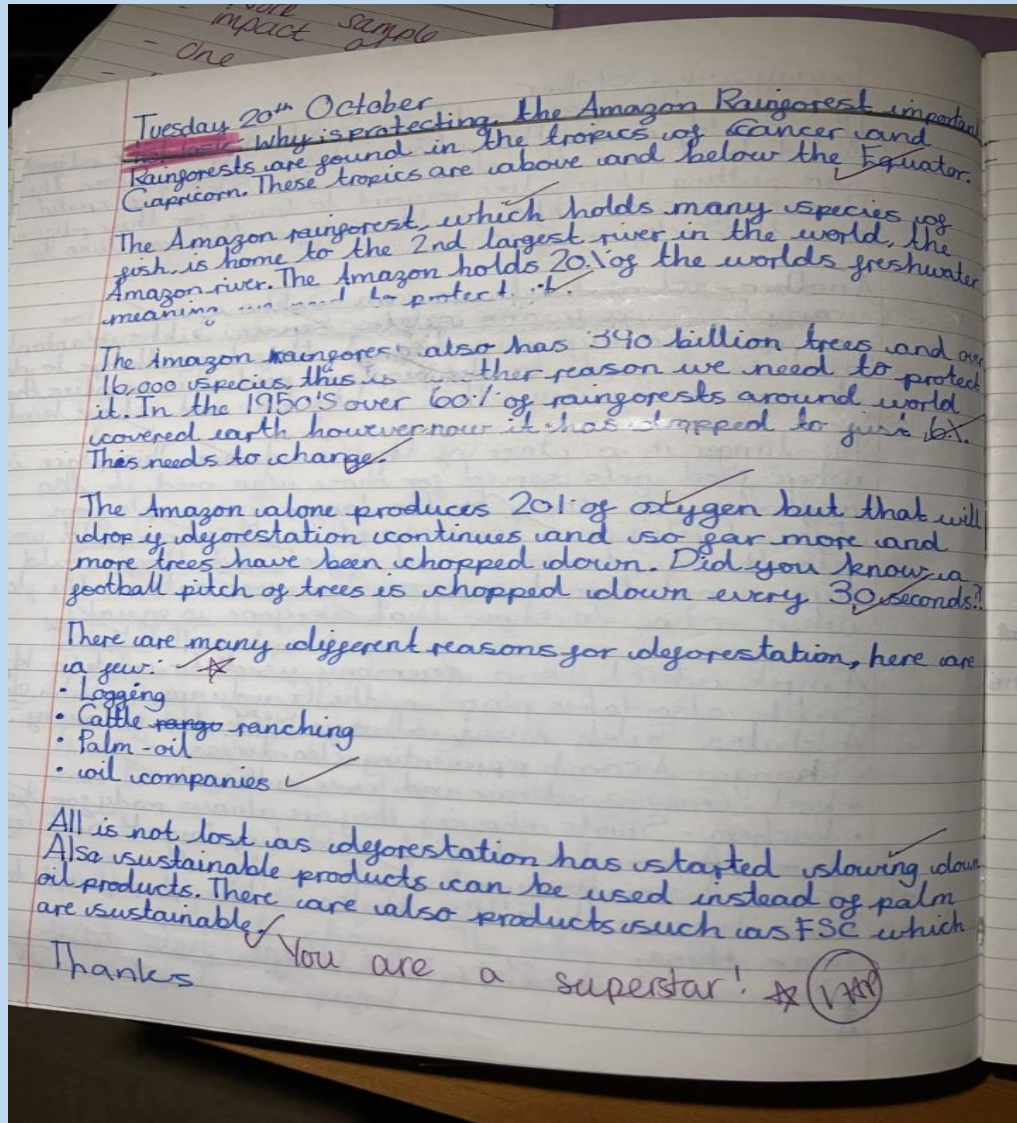 impact sample
- one
Tuesday 20th October
Why is protecting the Amazon Rainforest important
Rainforests are found in the tropics of Cancer and
Capricorn. These tropics are above and below the Equator.
The Amazon rainforest, which holds many species of
fish, is home to the 2nd largest river in the world, the
Amazon river. The Amazon holds 20% of the worlds freshwater
meaning we need to protect it.
The Amazon rainforest also has 390 billion trees and over
16,000 species, this is another reason we need to protect
it. In the 1950'S over 60% of rainforests around world
covered earth however now it has dropped to just 6%.
This needs to change.
The Amazon alone produces 20% of oxygen but that will
drop if deforestation continues and so far more and
more trees have been chopped down. Did you know a
football pitch of trees is chopped down every 30 seconds?
There are many different reasons for deforestation, here are
a few:
• Logging
• Cattle rango ranching
• Palm-oil
• oil companies
All is not lost as deforestation has started slowing down
Also sustainable products can be used instead of palm
oil products. There are also products such as FSC which
are sustainable.
You are a superstar!
Thanks